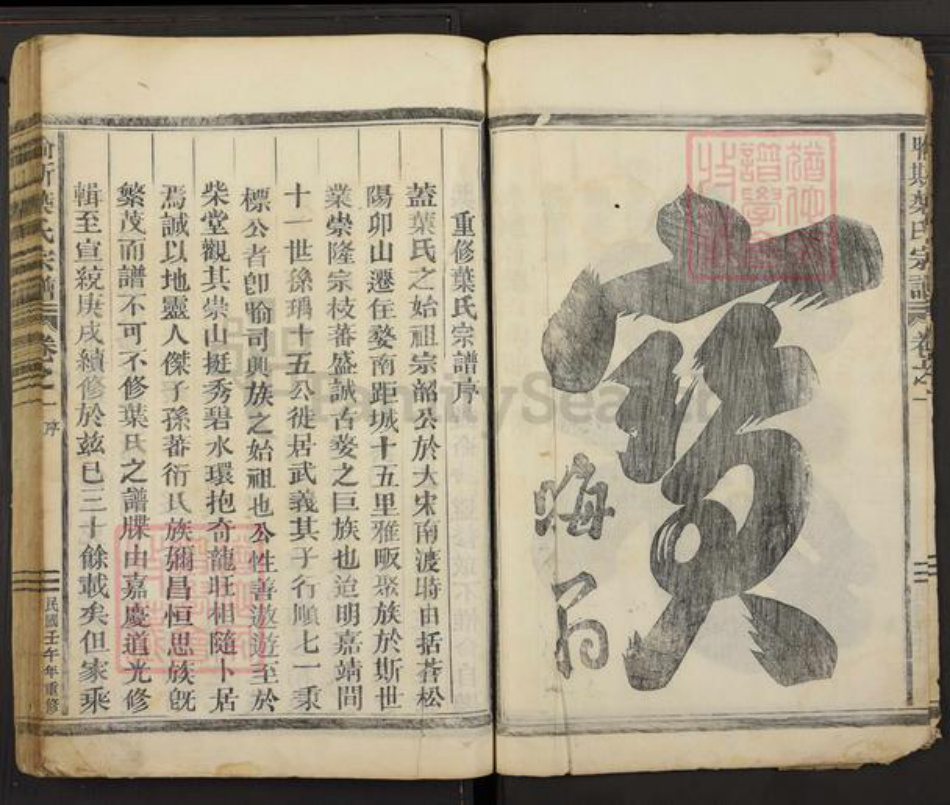 寶
晦翁
重修葉氏宗譜序
蓋葉氏之始祖宗韶公於大宋南渡時由括蒼松
陽卯山遷住婺南距城十五里雅畈聚族於斯世
業崇隆宗枝蕃盛誠古婺之巨族也迨明嘉靖間
十一世孫瑀十五公徙居武義其子行順七一秉
標公者卽朥司興族之始祖也公性善遨遊至於
柴堂觀其崇山挺秀碧水環抱奇龍旺相隨卜居
焉誠以地靈人傑子孫蕃衍氏族彌昌恒思族旣
繁茂而譜不可不修葉氏之譜牒由嘉慶道光修
輯至宣統庚戌續修於兹已三十餘載矣但家乘
葉氏宗譜 卷之一 序 民國壬午年重修
葉氏宗譜 卷之一
FamilySearch